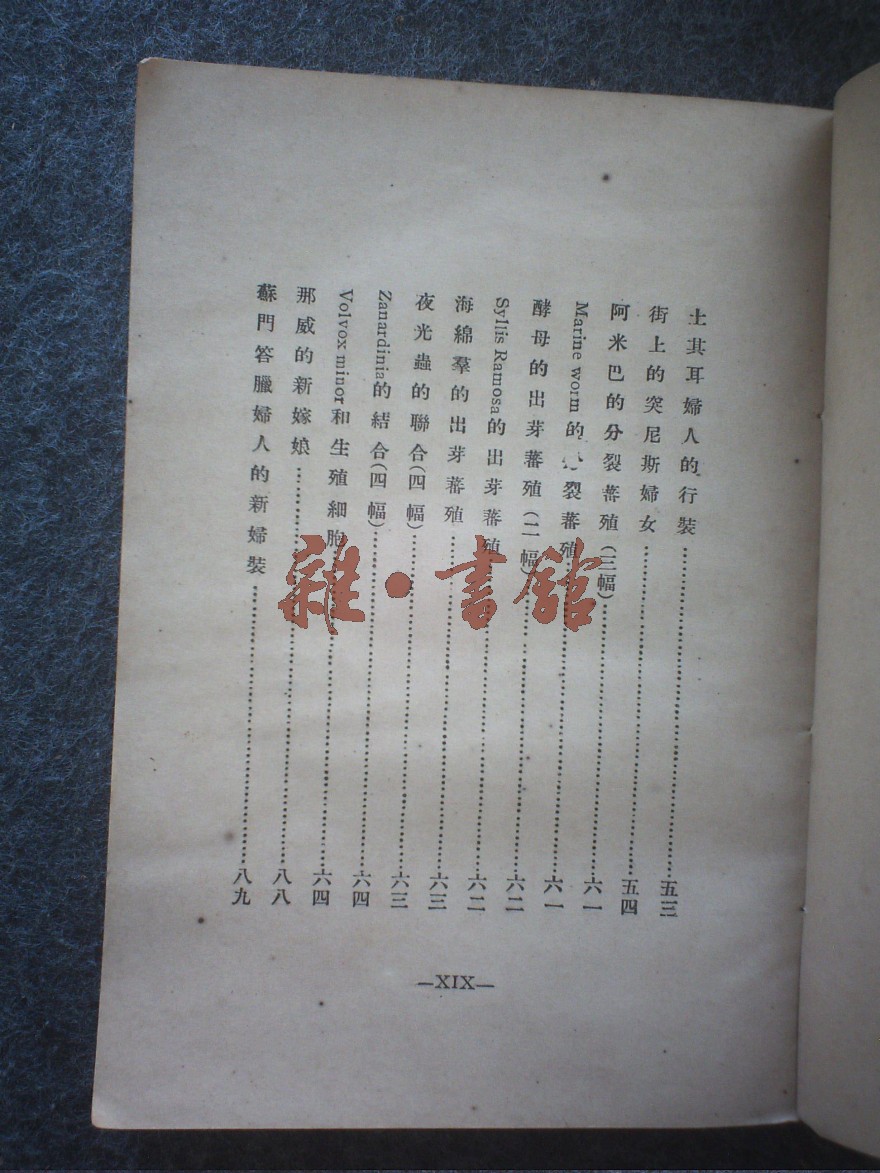 土其耳婦人的行裝……五三
街上的突尼斯婦女……五四
阿米巴的分裂蕃殖(三幅)……六一
Marine worm的 裂蕃殖……六一
酵母的出芽蕃殖(二幅)……六二
Syllis Ramosa的出芽蕃殖……六二
海綿羣的出芽蕃殖……六三
夜光蟲的聯合(四幅)……六三
Zanardinia的結合(四幅)……六四
Volvox minor和生殖細胞……六四
那威的新嫁娘……八八
蘇門答臘婦人的新婦裝……八九
—XIX—
雜·書館